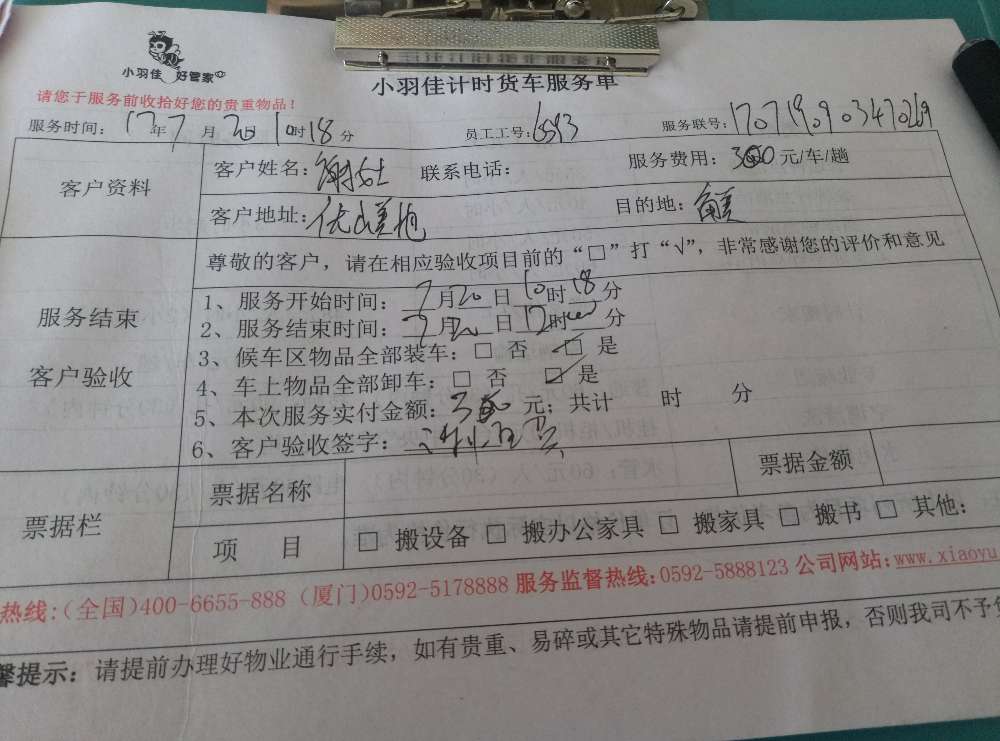 小羽佳 好管家
小羽佳计时货车服务单
请您于服务前收拾好您的贵重物品！
服务时间：17年7月20日10时18分 员工工号：6593 服务联号：1707190903470269
客户资料
客户姓名：谢女士 联系电话： 服务费用：300元/车/趟
客户地址： 目的地：
服务结束
客户验收
尊敬的客户，请在相应验收项目前的“□”打“√”，非常感谢您的评价和意见
1、服务开始时间：7月20日10时18分
2、服务结束时间：7月20日12时00分
3、候车区物品全部装车：□ 否 ☑ 是
4、车上物品全部卸车：□ 否 ☑ 是
5、本次服务实付金额：300元；共计 时 分
6、客户验收签字：
票据栏
票据名称 票据金额
项 目 □ 搬设备 □ 搬办公家具 □ 搬家具 □ 搬书 □ 其他：
热线：（全国）400-6655-888（厦门）0592-5178888 服务监督热线：0592-5888123 公司网站：www.xiaoyu
馨提示：请提前办理好物业通行手续，如有贵重、易碎或其它特殊物品请提前申报，否则我司不予